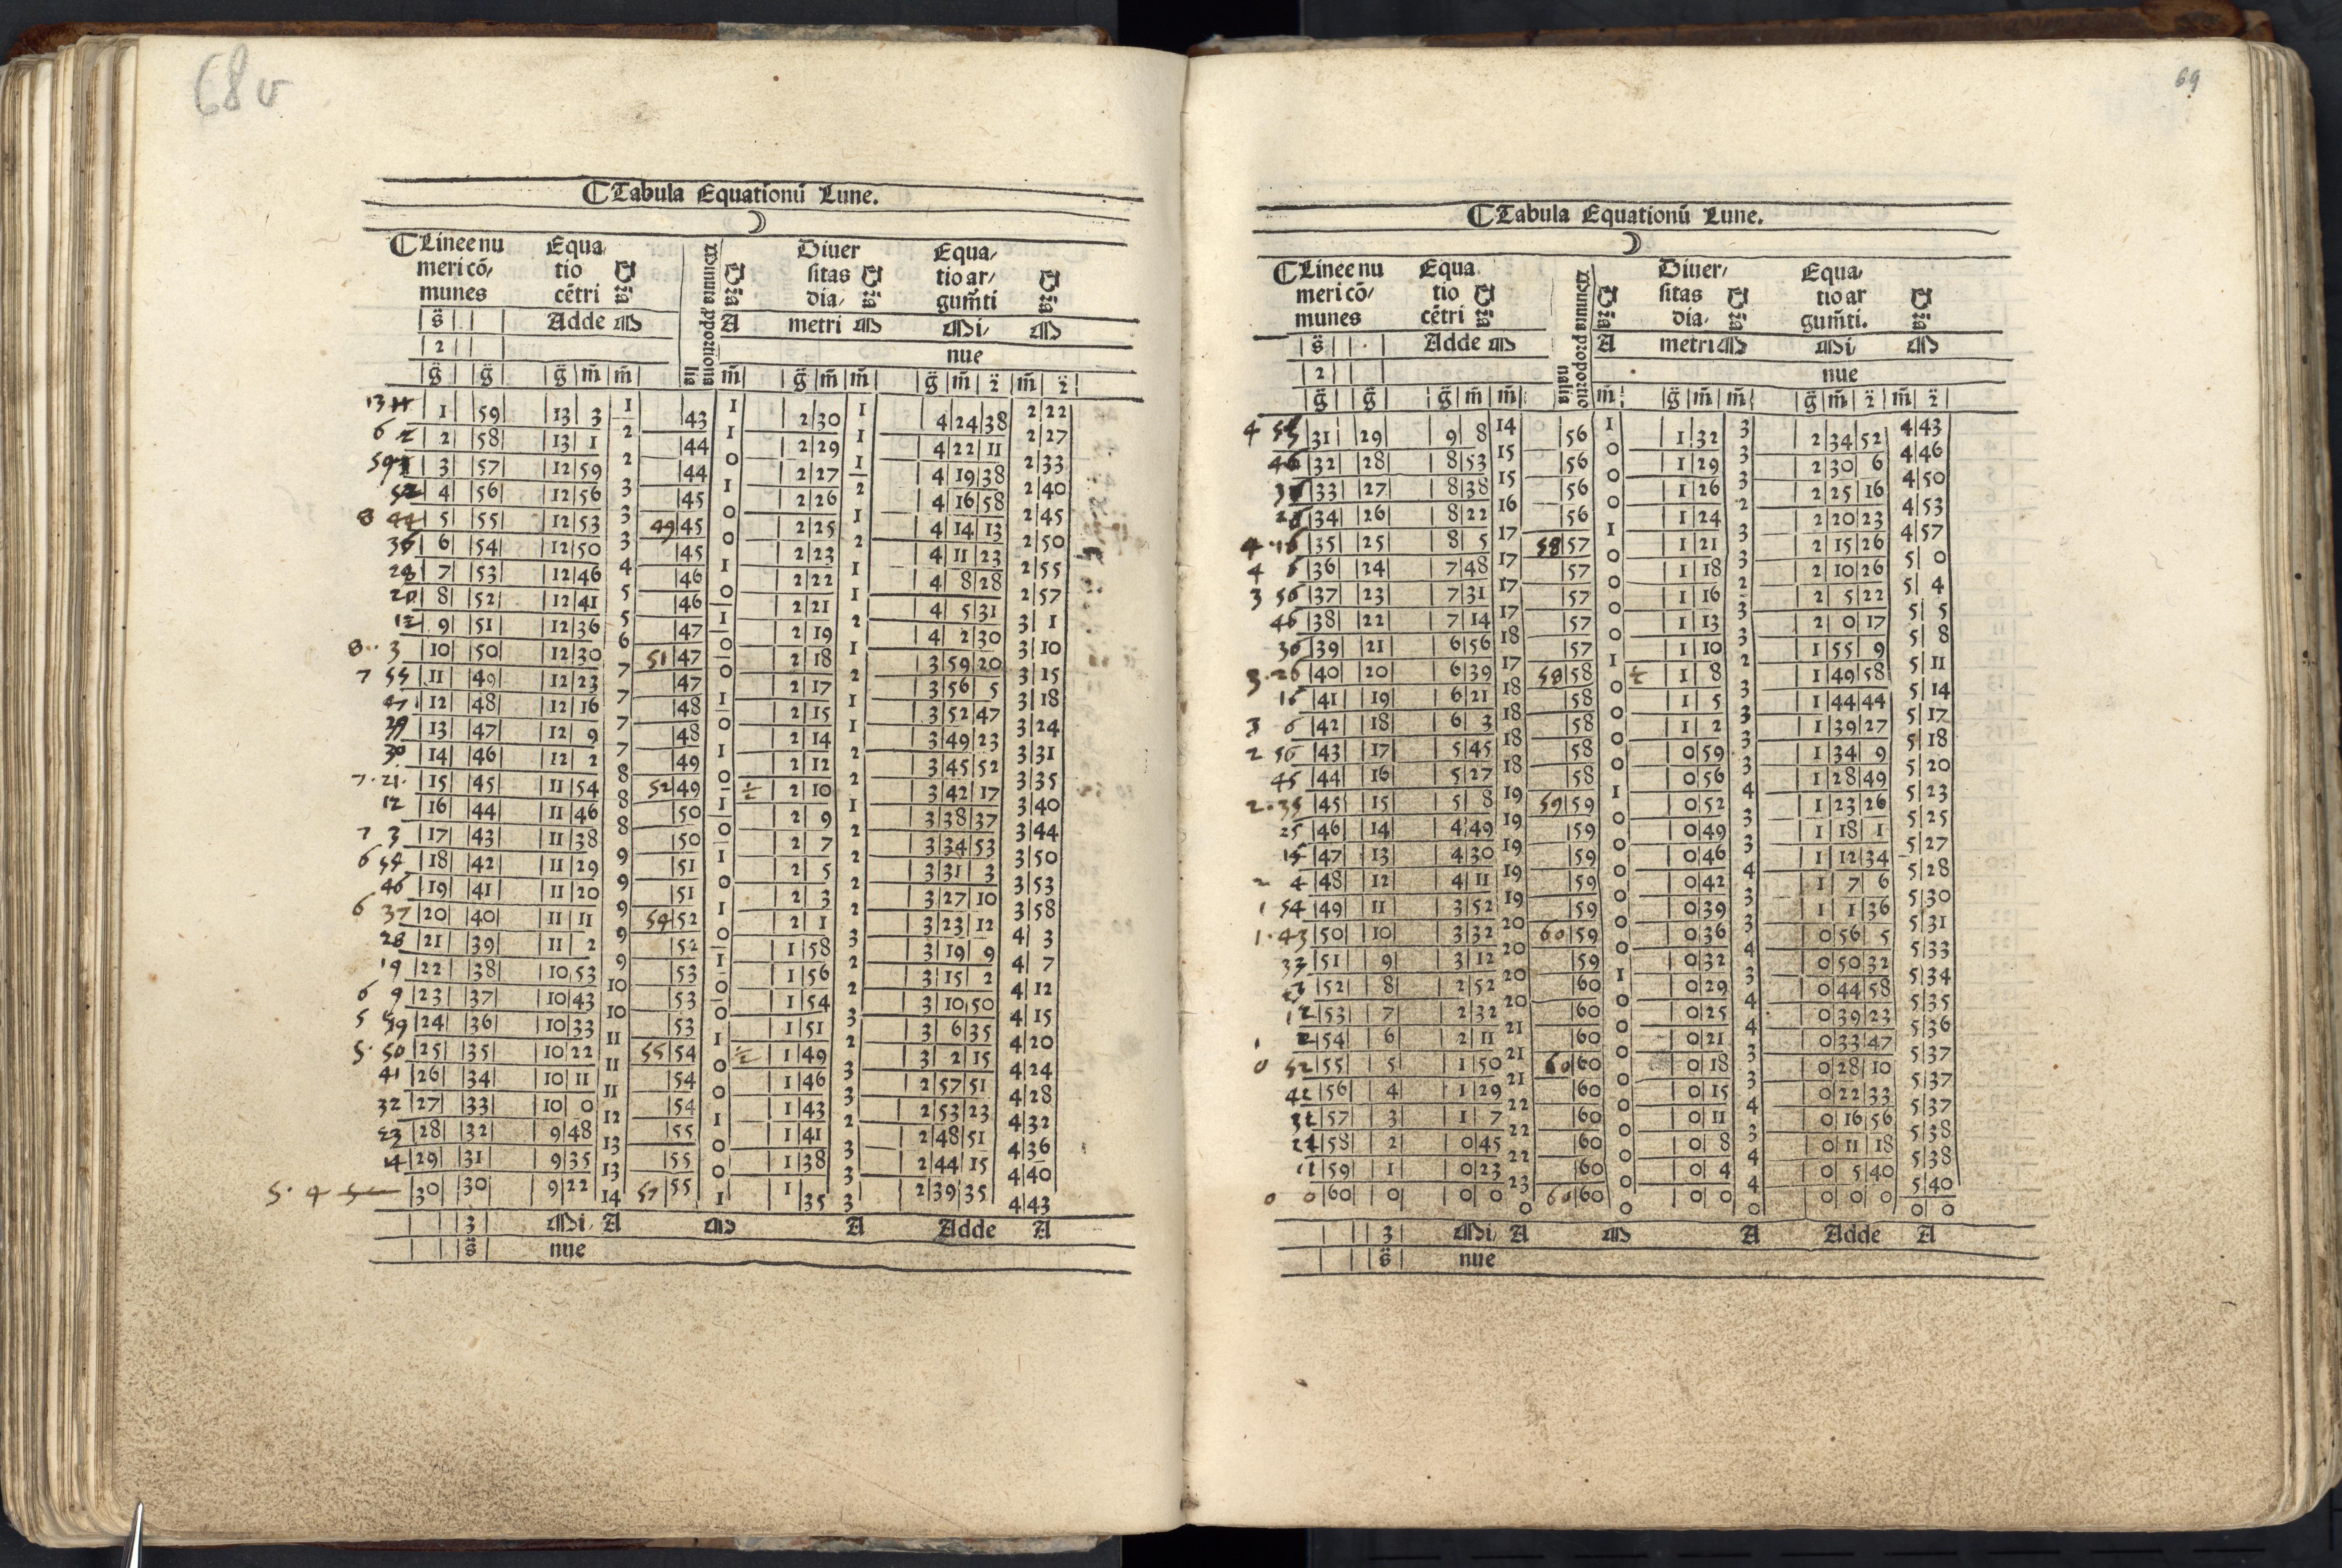 68v
Tabula Equationū Lune.
☽
Linee nu Equa Minuta ꝓportiona Diuer Equa,
meri cō, tio Dria Dria sitas Dria tio ar, Dria
munes cētri dia, gum̄ti
s̄ Adde M lia A metri M Mi, M
2 nue
g̈ g̈ g̈ m̄ m̄ m̄ g̈ m̄ m̄ g̈ m̄ 2̈ m̄ 2̈
1 59 13 3 1 43 1 2 30 1 4 24 38 2 22
6 2 58 13 1 2 44 1 2 29 1 4 22 11 2 27
3 57 12 59 2 44 0 2 27 1 4 19 38 2 33
52 4 56 12 56 3 45 1 2 26 2 4 16 58 2 40
8 44 5 55 12 53 3 49 45 0 2 25 1 4 14 13 2 45
36 6 54 12 50 3 45 0 2 23 2 4 11 23 2 50
28 7 53 12 46 4 46 1 2 22 1 4 8 28 2 55
20 8 52 12 41 5 46 0 2 21 1 4 5 31 2 57
12 9 51 12 36 5 47 1 2 19 2 4 2 30 3 1
8 3 10 50 12 30 6 51 47 0 2 18 1 3 59 20 3 10
7 55 11 49 12 23 7 47 0 2 17 2 3 56 5 3 15
47 12 48 12 16 7 48 1 2 15 1 3 52 47 3 18
39 13 47 12 9 7 48 0 2 14 1 3 49 23 3 24
30 14 46 12 2 7 49 1 2 12 2 3 45 52 3 31
7·21· 15 45 11 54 8 52 49 0 ½ 2 10 2 3 42 17 3 35
12 16 44 11 46 8 50 1 2 9 1 3 38 37 3 40
7 3 17 43 11 38 8 50 0 2 7 2 3 34 53 3 44
6 54 18 42 11 29 9 51 1 2 5 2 3 31 3 3 50
46 19 41 11 20 9 51 0 2 3 2 3 27 10 3 53
6 37 20 40 11 11 9 54 52 1 2 1 2 3 23 12 3 58
28 21 39 11 2 9 52 0 1 58 3 3 19 9 4 3
19 22 38 10 53 9 53 1 1 56 2 3 15 2 4 7
6 9 23 37 10 43 10 53 0 1 54 2 3 10 50 4 12
5 59 24 36 10 33 10 53 0 1 51 3 3 6 35 4 15
5· 50 25 35 10 22 11 55 54 1 ½ 1 49 2 3 2 15 4 20
41 26 34 10 11 11 54 0 1 46 3 2 57 51 4 24
32 27 33 10 0 11 54 0 1 43 3 2 53 23 4 28
23 28 32 9 48 12 55 1 1 41 2 2 48 51 4 32
14 29 31 9 35 13 55 0 1 38 3 2 44 15 4 36
5· 4 30 30 9 22 13 57 55 0 1 35 3 2 39 35 4 40
14 1 3 4 43
3 Mi, A M A Adde A
s̄ nue
69
Tabula Equationū Lune.
☽
Linee nu Equa Minuta proportio Diuer, Equa,
meri cō, tio Dria Dria sitas Dria tio ar Dria
munes cētri dia, gum̄ti.
s̄ Adde M nalia A metri M Mi, M
2 nue
g̈ g̈ g̈ m̄ m̄ m̄ g̈ m̄ m̄ g̈ m̄ 2̈ m̄ 2̈
4 55 31 29 9 8 14 56 1 1 32 3 2 34 52 4 43
46 32 28 8 53 15 56 0 1 29 3 2 30 6 4 46
33 27 8 38 15 56 0 1 26 3 2 25 16 4 50
34 26 8 22 16 56 0 1 24 2 2 20 23 4 53
4·16 35 25 8 5 17 58 57 1 1 21 3 2 15 26 4 57
4 6 36 24 7 48 17 57 0 1 18 3 2 10 26 5 0
3 56 37 23 7 31 17 57 0 1 16 2 2 5 22 5 4
46 38 22 7 14 17 57 0 1 13 3 2 0 17 5 5
36 39 21 6 56 18 57 0 1 10 3 1 55 9 5 8
3·26 40 20 6 39 17 58 58 1 ½ 1 8 2 1 49 58 5 11
16 41 19 6 21 18 58 0 1 5 3 1 44 44 5 14
3 6 42 18 6 3 18 58 0 1 2 3 1 39 27 5 17
2 56 43 17 5 45 18 58 0 0 59 3 1 34 9 5 18
45 44 16 5 27 18 58 0 0 56 3 1 28 49 5 20
2·35 45 15 5 8 19 59 59 1 0 52 4 1 23 26 5 23
25 46 14 4 49 19 59 0 0 49 3 1 18 1 5 25
15 47 13 4 30 19 59 0 0 46 3 1 12 34 5 27
2 4 48 12 4 11 19 59 0 0 42 4 1 7 6 5 28
1 54 49 11 3 52 19 59 0 0 39 3 1 1 36 5 30
1·43 50 10 3 32 20 60 59 0 0 36 3 0 56 5 5 31
33 51 9 3 12 20 59 0 0 32 4 0 50 32 5 33
23 52 8 2 52 20 60 1 0 29 3 0 44 58 5 34
12 53 7 2 32 20 60 0 0 25 4 0 39 23 5 35
1 2 54 6 2 11 21 60 0 0 21 4 0 33 47 5 36
0 52 55 5 1 50 21 60 60 0 0 18 3 0 28 10 5 37
42 56 4 1 29 21 60 0 0 15 3 0 22 33 5 37
32 57 3 1 7 22 60 0 0 11 4 0 16 56 5 37
58 2 0 45 22 60 0 0 8 3 0 11 18 5 38
11 59 1 0 23 22 60 0 0 4 4 0 5 40 5 38
0 0 60 0 0 0 23 60 60 0 0 0 4 0 0 0 5 40
0 0 0 0 0
3 Mi, A M A Adde A
s̄ nue